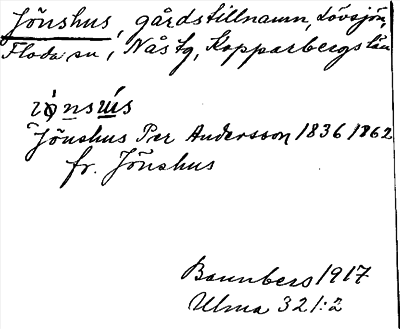 Jönshus, gårdstillnamn, Lövsjön,
Floda sn, Nås tg, Kopparbergs län
Jönshus Per Andersson 1836 1862
fr. Jönshus
Bannbers 1917
Ulma 321:2